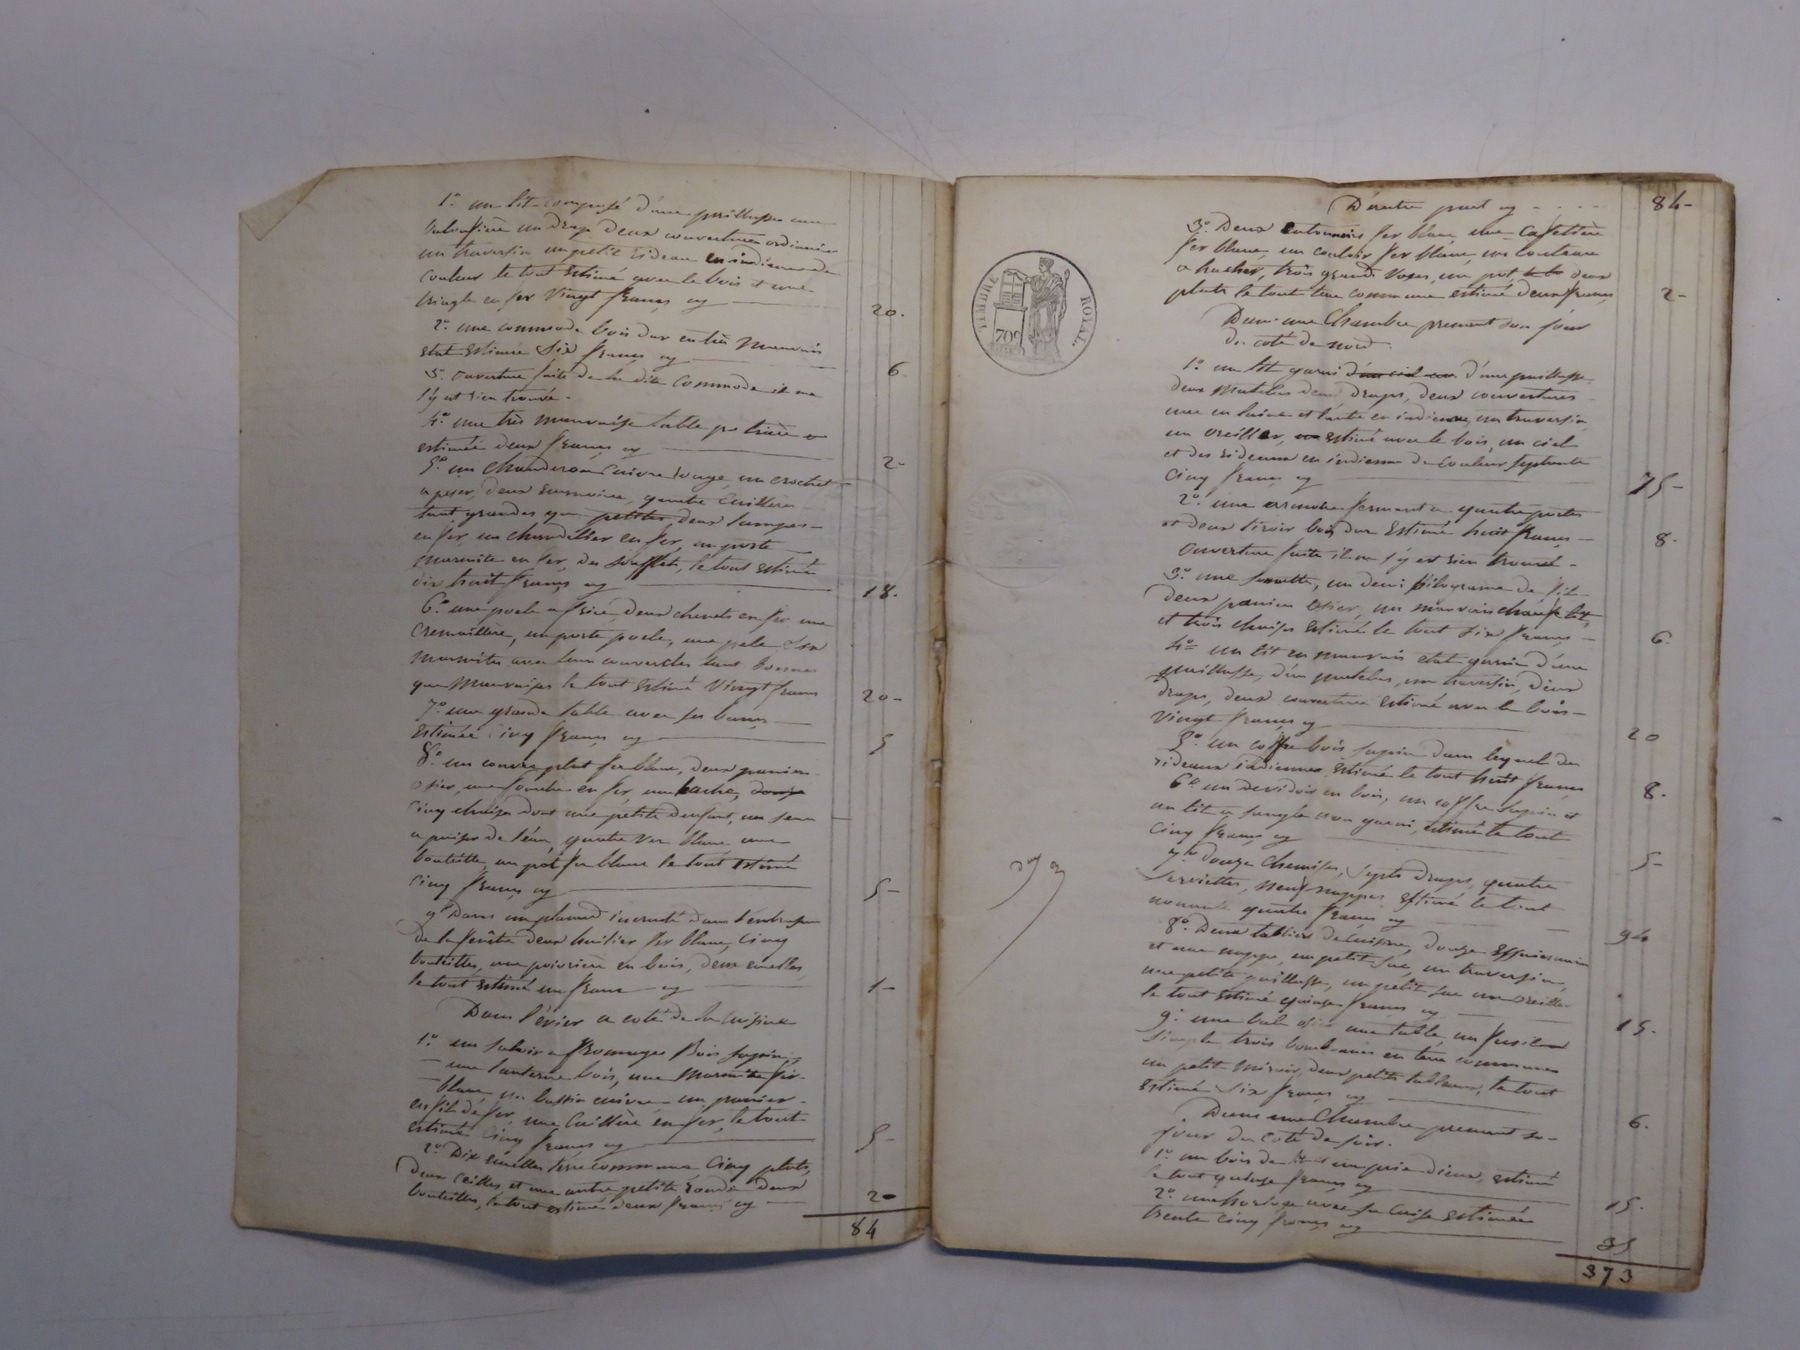 1º un lit composé d'une paillasse une
un drap deux couvertures ordinaires
un traversin un petit rideau en indienne de
couleur le tout estimé avec le bois et une
tringle en fer vingt francs cy 20.
2º une commode bois dur en très mauvais
etat estimée six francs cy 6
3º ouverture faite de la dite commode il ne
s'y est rien trouvé.
4º une très mauvaise table
estimée deux francs cy 2-
5º un chauderon cuivre rouge, un crochet
a peser, deux quatre cuilleres
tant grandes que petites, deux lampes
en fer un chandelier en fer, un poste
marmite en fer, des soufflets, le tout estimé
dix huit francs cy 18.
6º une poele a frire, deux chenets en fer une
cremaillere, un porte poele, une pele six
marmites avec leurs couvercles tant bonnes
que mauvaises le tout estimé vingt francs 20-
7º une grande table avec ses bancs
estimée cinq francs cy 5
8º un couvre plat fer blanc, deux paniers
osier, une en fer, une hache,
cinq chaises dont une petite d'enfant, un seau
a puiser de l'eau, quatre ver blanc une
bouteille, un pot fer blanc le tout estimé
cinq francs cy 5-
9º Dans un placard incrusté dans l'embrasure
de la fenêtre deux huilier fer blanc, cinq
bouteilles, une poivrière en bois, deux ecuelles
le tout estimé un franc cy 1-
Dans l'évier a coté de la cuisine
1º un saloir a fromages bois sapin,
une lanterne bois, une marmite fer
blanc, un bassin cuivre un panier
en fil de fer, une cuillère en fer, le tout
estimé cinq francs cy 5-
2º Dix ecuelles terre commune cinq plats,
deux et une autre petite ronde deux
bouteilles, le tout estimé deux francs cy 2-
84
D'autre part cy 84-
3º Deux entonnoirs fer blanc une cafetière
fer blanc, un couloir fer blanc un couteau
a hacher, trois grands vases, un pot deux
plats le tout terre commune estimé deux francs 2-
Dans une Chambre prenant son jour
du coté de nord.
1º un lit garni d'un ciel d'une paillasse
deux matelas deux draps, deux couvertures
une en laine et l'autre en indienne, un traversin
un oreiller, estimé avec le bois, un ciel
et des rideaux en indienne de couleur septante
cinq francs cy 75-
2º une armoire fermant a quatre portes
et deux tiroir bois dur estimé huit francs 8-
ouverture faite il ne s'y est rien trouvé.
3º une un demi kilograme de fil
deux paniers osier, un mauvais chauffe lit,
et trois chaises estimé le tout six francs 6.
4º un lit en mauvais etat garni d'une
paillasse, d'un matelas, un traversin, deux
draps, deux couvertures estimé avec le bois
vingt francs cy 20
5º un coffre bois sapin dans lequel des
rideaux indiennes estimé le tout huit francs 8.
6º un devidoir en bois, un coffre sapin et
un lit a sangle non garni, estimé le tout
cinq francs cy 5-
7º douze chemises, septs draps, quatre
serviettes, neuf nappes estimé le tout
nonante quatre francs cy 94
8º Deux tabliers de cuisine, douze essuiemain
et une nappe, un petit sac, un traversin,
une petite paillasse, un petit sac un oreiller
le tout estimé quinze francs cy 15.
9º une une table un fusil a
simple trois bombonnes en terre commune
un petit miroir deux petits tableaux, le tout
estimé six francs cy 6.
Dans une Chambre prenant son
jour du coté de soir.
1º un bois de lit un prie dieu, estimé
le tout quinze francs cy 15.
2º une horloge avec sa caisse estimées
trente cinq francs cy 35
373
TIMBRE ROYAL.
70c